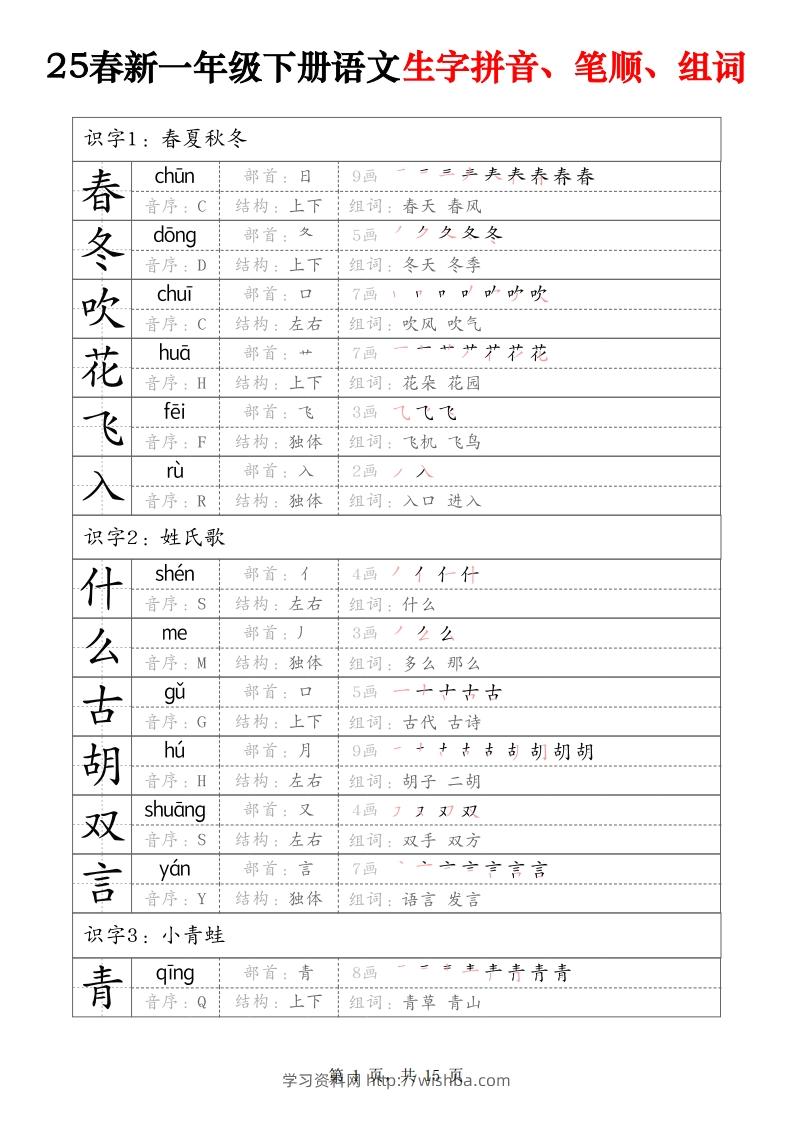 25春新一年级下册语文生字拼音、笔顺、组词
识字1：春夏秋冬
春 chūn 部首：日 9画
音序：C 结构：上下 组词：春天 春风
冬 dōng 部首：夂 5画
音序：D 结构：上下 组词：冬天 冬季
吹 chuī 部首：口 7画
音序：C 结构：左右 组词：吹风 吹气
花 huā 部首：艹 7画
音序：H 结构：上下 组词：花朵 花园
飞 fēi 部首：飞 3画
音序：F 结构：独体 组词：飞机 飞鸟
入 rù 部首：入 2画
音序：R 结构：独体 组词：入口 进入
识字2：姓氏歌
什 shén 部首：亻 4画
音序：S 结构：左右 组词：什么
么 me 部首：丿 3画
音序：M 结构：独体 组词：多么 那么
古 gǔ 部首：口 5画
音序：G 结构：上下 组词：古代 古诗
胡 hú 部首：月 9画
音序：H 结构：左右 组词：胡子 二胡
双 shuāng 部首：又 4画
音序：S 结构：左右 组词：双手 双方
言 yán 部首：言 7画
音序：Y 结构：独体 组词：语言 发言
识字3：小青蛙
青 qīng 部首：青 8画
音序：Q 结构：上下 组词：青草 青山
第 1 页，共 15 页
学习资料网 http://wishba.com